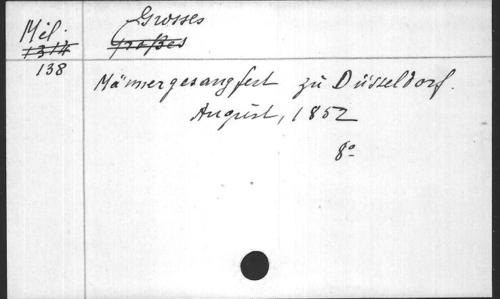 Mil.
1314
138
Grosses
Großes
Männergesangfest zu Düsseldorf.
August, 1852
8º